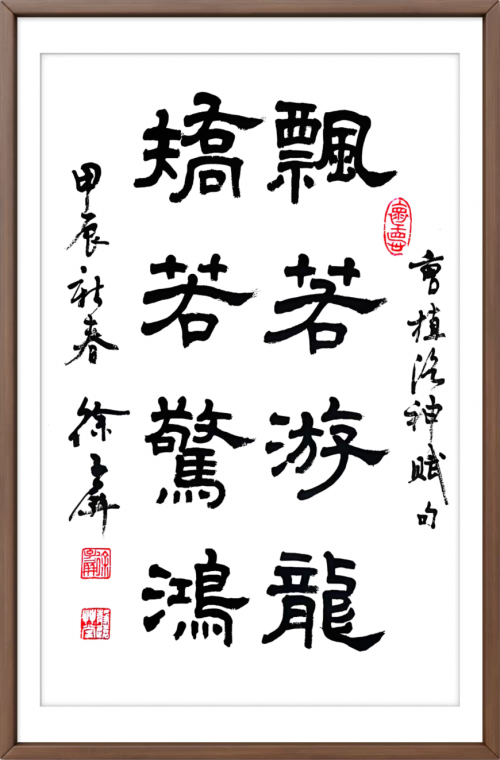 曹植洛神賦句
飄若游龍
矯若驚鴻
甲辰新春 徐